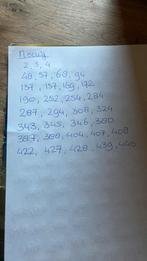 2, 3, 4
48, 57, 68, 94
137, 157, 169, 172
190, 252, 254, 284
287, 294, 308, 324
343, 345, 346, 380
387, 388, 404, 407, 408
422, 427, 428, 439, 440